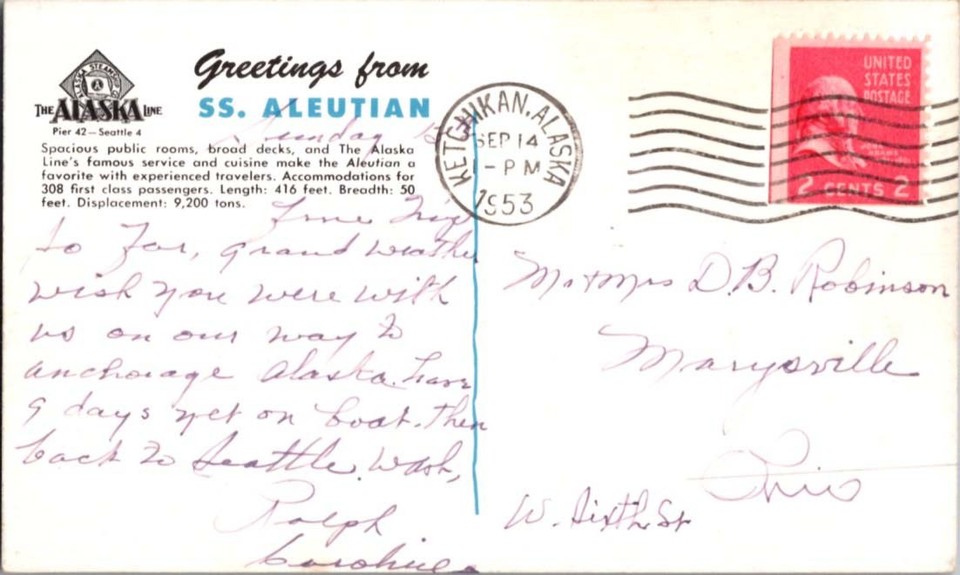 Greetings from
SS. ALEUTIAN
ALASKA STEAMSHIP CO
THE ALASKA LINE
Pier 42 — Seattle 4
Spacious public rooms, broad decks, and The Alaska
Line's famous service and cuisine make the Aleutian a
favorite with experienced travelers. Accommodations for
308 first class passengers. Length: 416 feet. Breadth: 50
feet. Displacement: 9,200 tons.
KETCHIKAN, ALASKA
SEP 14
-PM
1953
UNITED
STATES
POSTAGE
2 CENTS 2
Sunday 13
Fine Trip
so Far, grand weather
wish you were with
us on our way to
anchorage alaska. have
9 days yet on boat. then
back to Seattle. Wash,
Ralph
Mr + Mrs D. B. Robinson
Marysville
Ohio
W. Sixth St